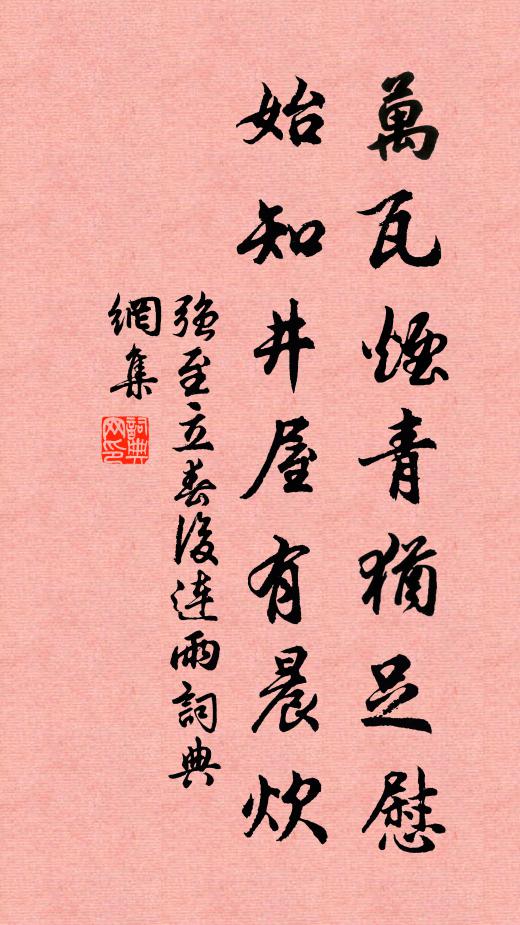 萬瓦煙青猶足慰
始知井屋有晨炊
強至立春後連雨詞典
網集
詞典
网印